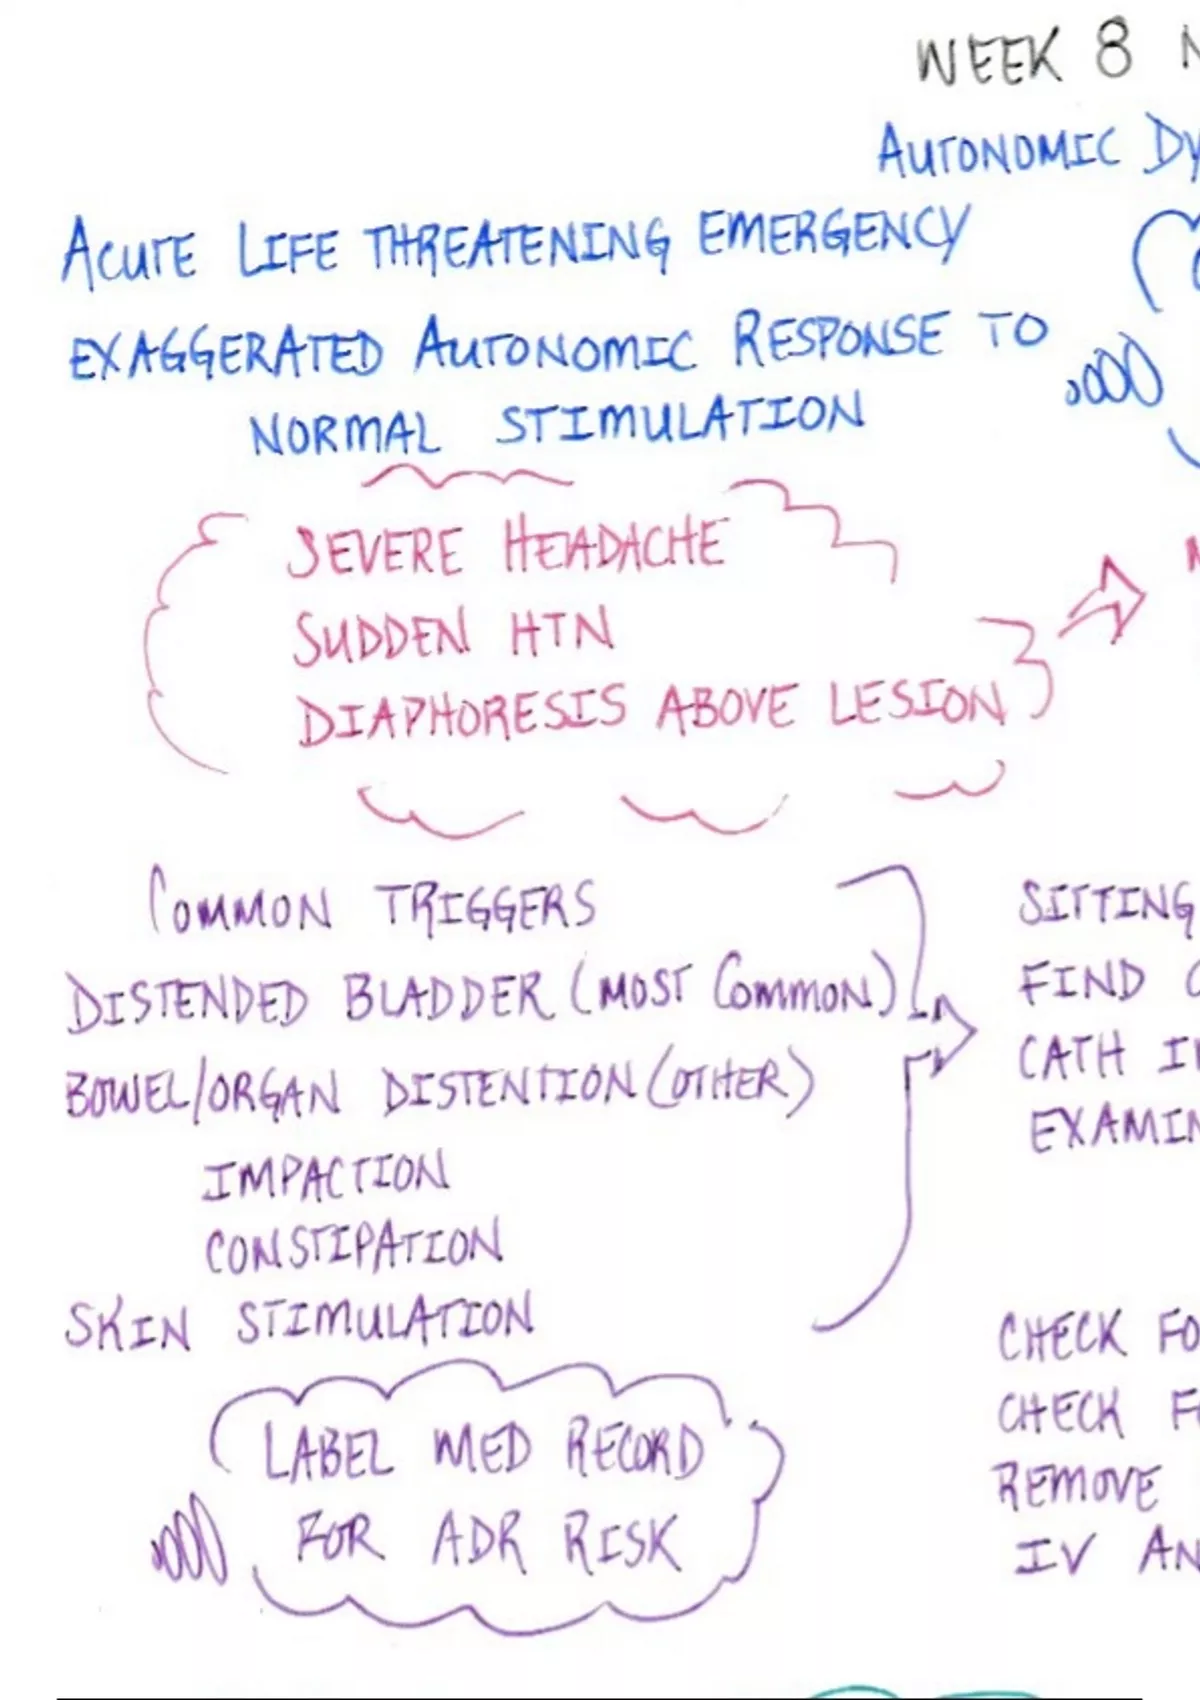 WEEK 8
AUTONOMIC DY
ACUTE LIFE THREATENING EMERGENCY
EXAGGERATED AUTONOMIC RESPONSE TO
NORMAL STIMULATION
SEVERE HEADACHE
SUDDEN HTN
DIAPHORESIS ABOVE LESION
COMMON TRIGGERS
DISTENDED BLADDER (MOST COMMON)
BOWEL/ORGAN DISTENTION (OTHER)
IMPACTION
CONSTIPATION
SKIN STIMULATION
SITTING
FIND
CATH
EXAMIN
LABEL MED RECORD
FOR ADR RISK
CHECK FO
CHECK
REMOVE
IV AN